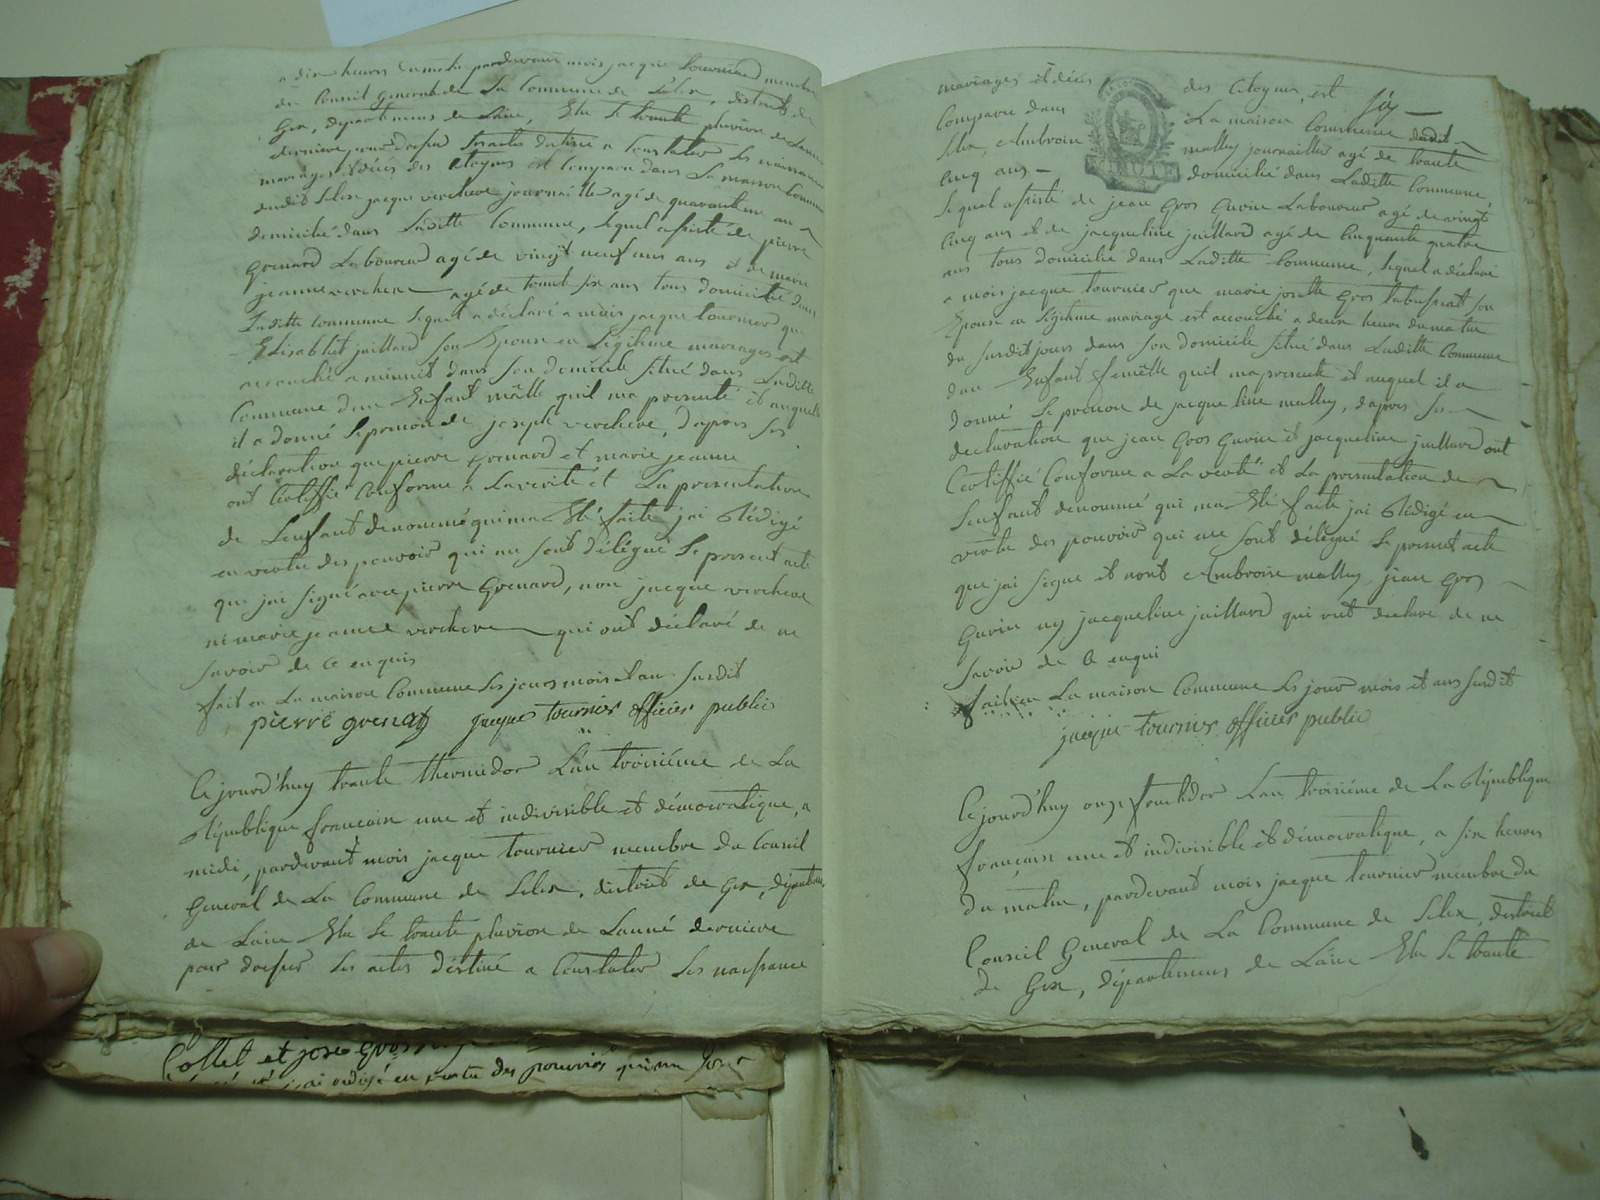 a dix heures du matin pardevant mois jacque tournier membre
du Conseil General de La Commune de Lelex, district de
Gex, departemens de Laine, Elu le trante pluviose de Lanné
derniere pour dresser les actes destiné a Constater les naissances
mariages et décès des Citoyens est Comparu dans La maison Commune
dudit Lelex jacque verchere journaillé agé de quarante un an
domicilié dans Laditte Commune, lequel assisté de pierre
Grenard Laboureur agé de vingt neuf ans ans et de marie
jeanne verchere agé de trente six ans tous domicilié dans
Laditte Commune lequel a déclaré a mois jacque tournier que
Elisabhit juillard son Epouse en Légitime mariages est
accouché a minuit dans son domicile situé dans Laditte
Commune d'un Enfant mâlle quil ma presenté et auquel
il a donné le prenon de joseph verchere, dapres les
déclaration que pierre Grenard et marie jeanne
ont Certiffié Conforme a La verité et La presentation
de Lenfant denommé qui ma Eté faite jai Rédigé
en vertu des pouvoir qui me sont délégué le present acte
que jai signé avec pierre Grenard, non jacque verchere
ni marie jeanne verchere qui ont déclaré de ne
savoir de ce enquis
fait en La maison Commune les jours mois et an susdit
pierre grenat jacque tournier officier public
Cejourd'huy trante thermidor L'an troisiéme de La
République francaise une et indivisible et démocratique, a
midi, pardevant mois jacque tournier membre du Conseil
General de La Commune de Lelex, district de Gex, départemens
de Laine Elu le trante pluviose de Lanné derniere
pour dresser les actes déstiné a Constater les naissance
Collet et jose gros
jai redigé en vertu des pouvoirs qui me sont
mariages et décès des Citoyens, est
Comparu dans La maison Commune dudit
Lelex, Ambroise mallay journaillier agé de trante
cinq ans domicilié dans Laditte Commune,
lequel assisté de jean Gros Gurin Laboureur agé de vingt
cinq ans et de jacqueline juillard agé de Cinquante quatre
ans tous domicilié dans Laditte Commune, lequel a déclaré
a mois jacque tournier que marie josette Gros son
Epouse en légitime mariage est accouché a deux heures du matin
du susdit jours dans son domicile situé dans Laditte Commune
dun Enfant femelle quil ma presenté et auquel il a
donné le prenon de jacque line mallay, dapres les
declaration que jean Gros Gurin et jacqueline juillard ont
Certiffié Conforme a La verité et La presentation de
lenfant denommé qui ma Eté faite jai Rédigé en
vertu des pouvoir qui me sont délégué le present acte
que jai signé et nont Ambroise mallay jean Gros
Gurin ny jacqueline juillard qui ont declare de ne
savoir de ce enqui
fait en La maison Commune les jour mois et ans susdit
jacque tournier officier public
Cejourd'huy onze fructidor L'an troisiéme de La République
française une et indivisible et démocratique, a six heures
du matin, pardevant mois jacque tournier membre du
Conseil General de La Commune de Lelex, district
de Gex, départemens de Laine Elu le trante